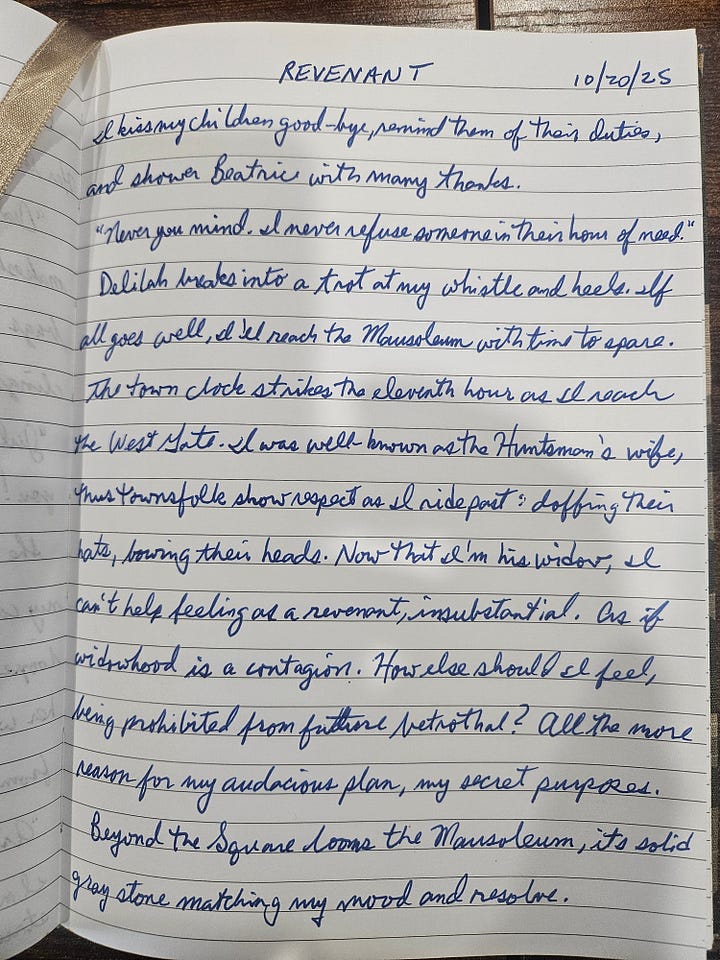 REVENANT 10/20/25
I kiss my children good-bye, remind them of their duties,
and shower Beatrice with many thanks.
"Never you mind. I never refuse someone in their hour of need."
Delilah breaks into a trot at my whistle and heels. If
all goes well, I'll reach the Mausoleum with time to spare.
The town clock strikes the eleventh hour as I reach
the West Gate. I was well-known as the Huntsman's wife,
thus townsfolk show respect as I ride past: doffing their
hats, bowing their heads. Now that I'm his widow, I
can't help feeling as a revenant, insubstantial. As if
widowhood is a contagion. How else should I feel,
being prohibited from future betrothal? All the more
reason for my audacious plan, my secret purposes.
Beyond the Square looms the Mausoleum, its solid
gray stone matching my mood and resolve.